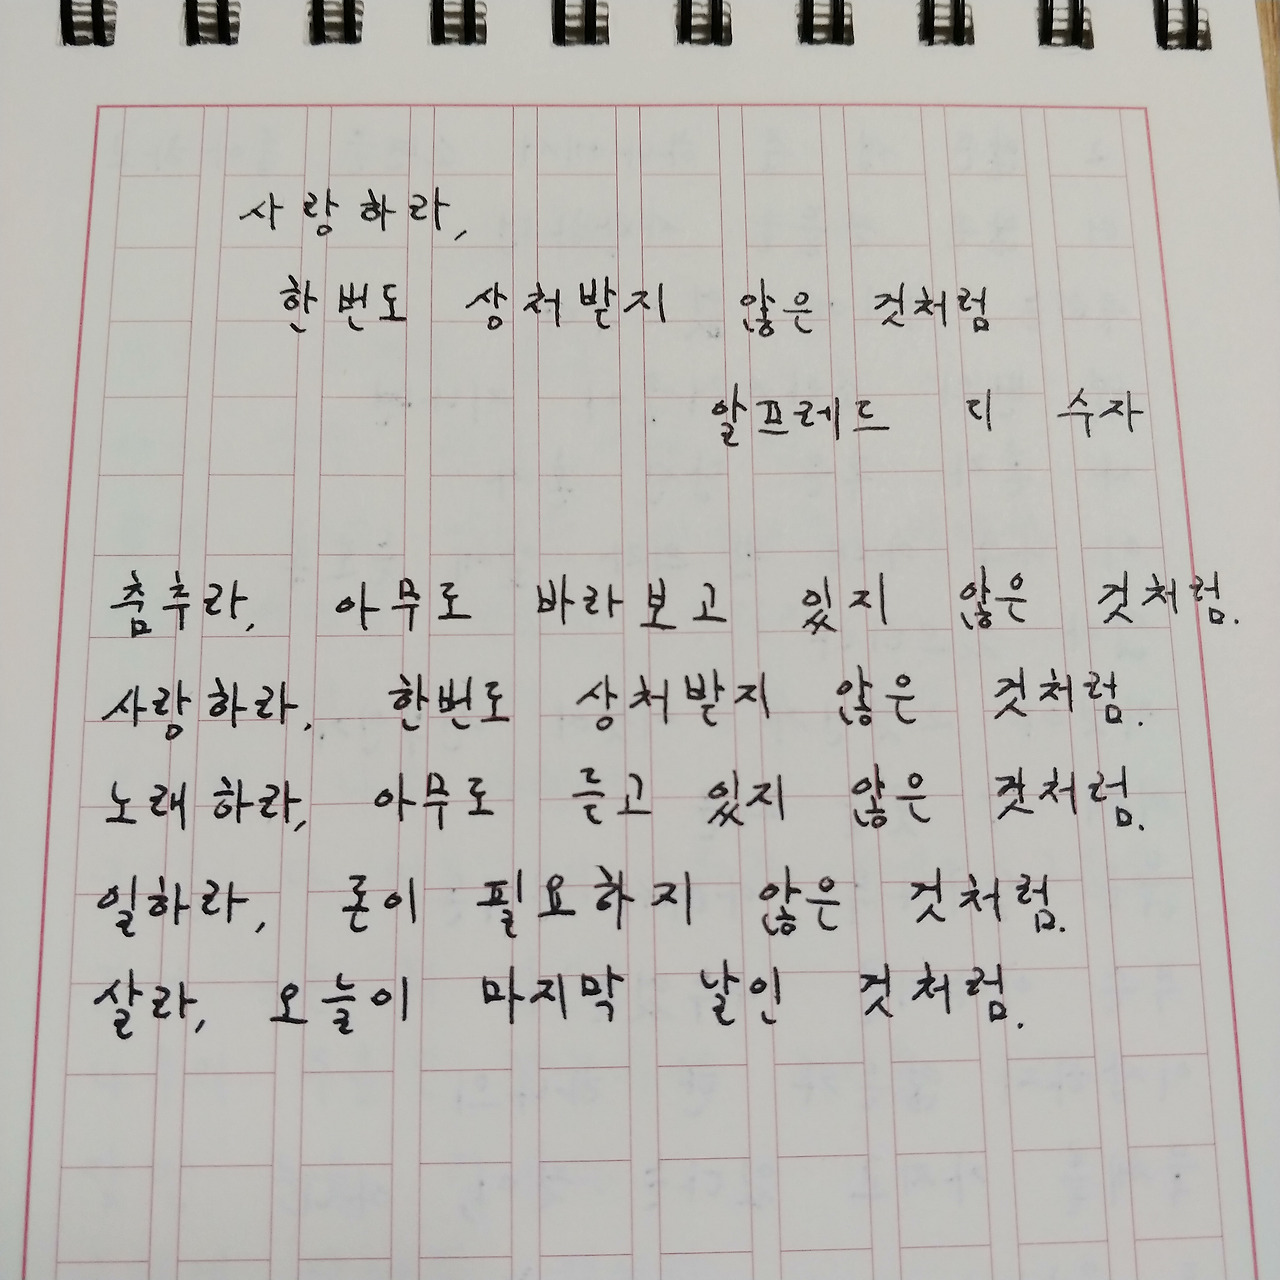 사랑하라,
한번도 상처받지 않은 것처럼
알프레드 디 수자
춤추라, 아무도 바라보고 있지 않은 것처럼.
사랑하라, 한번도 상처받지 않은 것처럼.
노래하라, 아무도 듣고 있지 않은 것처럼.
일하라, 돈이 필요하지 않은 것처럼.
살라, 오늘이 마지막 날인 것처럼.